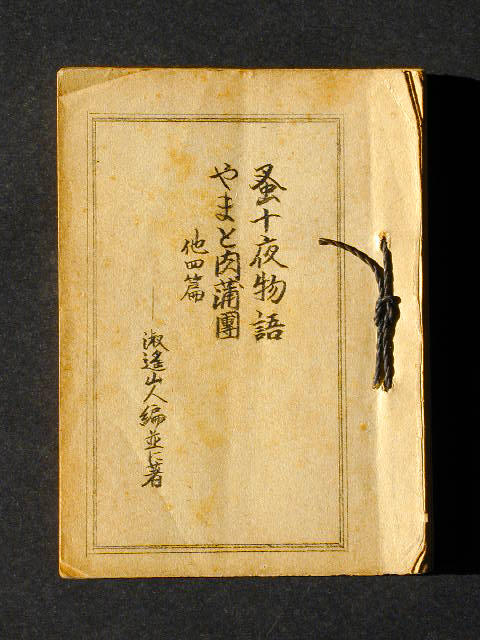 蚤十夜物語
やまと肉蒲團
他四篇
淑遙山人編並に著